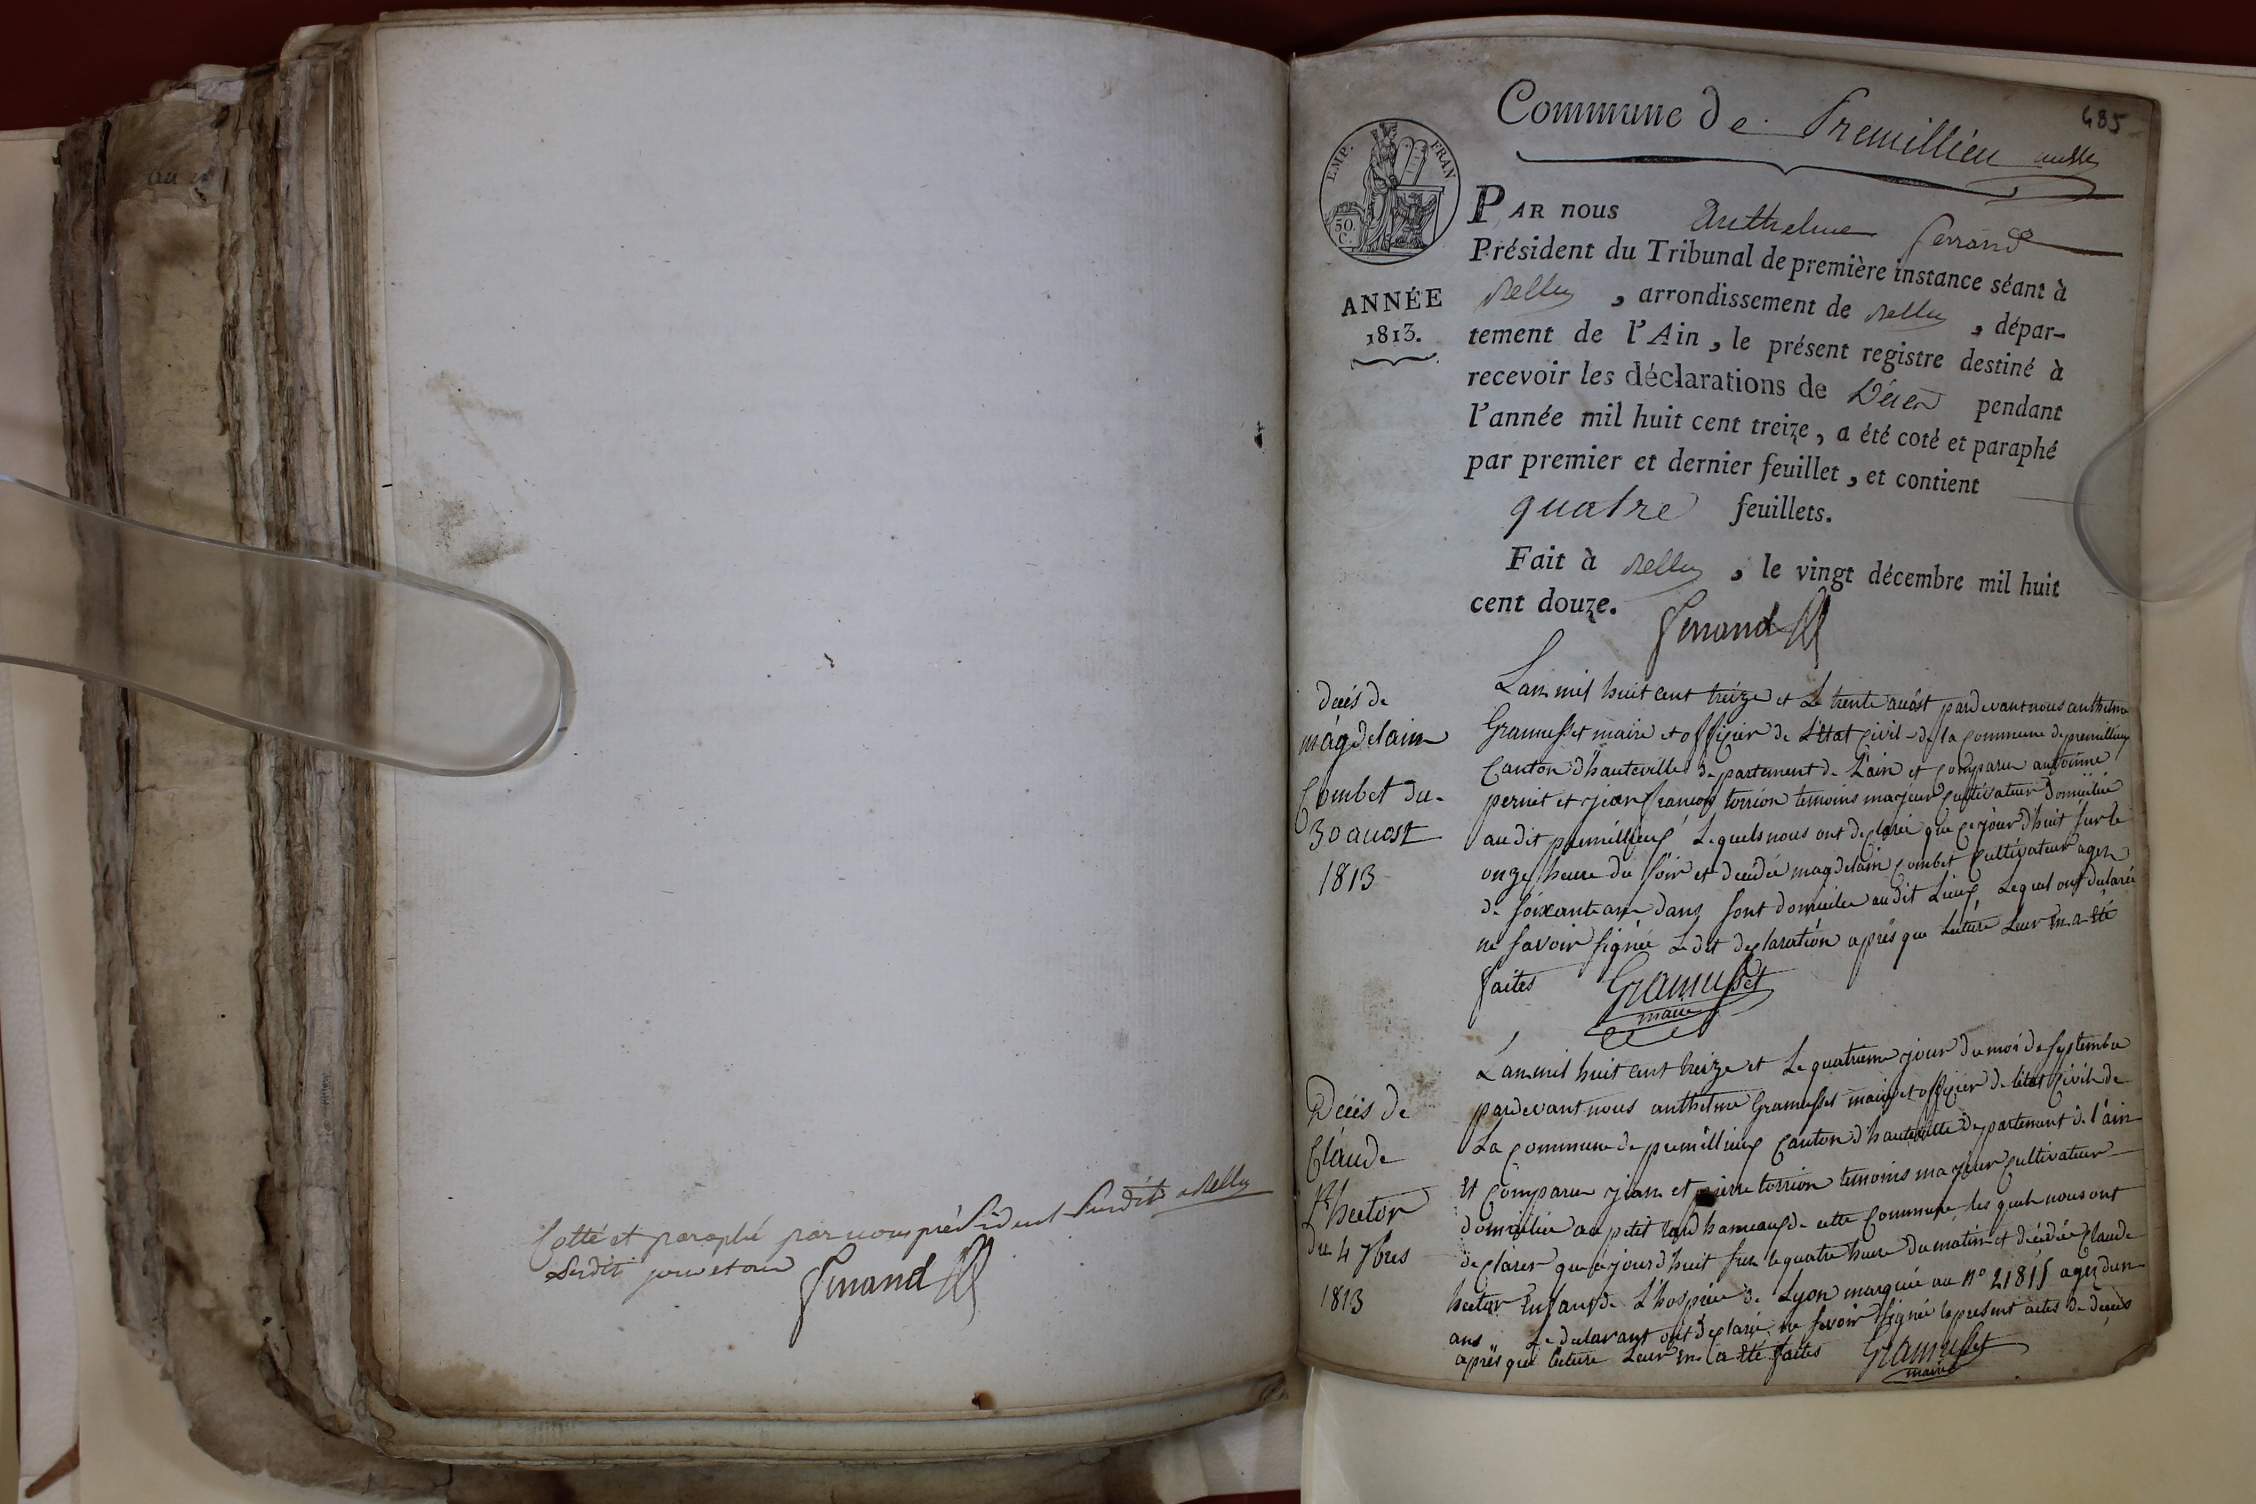 Cotté et paraphé par nous président susdit a Belley
Lesdits jour et an
Ferrand
485
Commune de Premillieu
EMP. FRAN
50. C.
PAR nous Anthelme Ferrand
Président du Tribunal de première instance séant à
ANNÉE
1813.
Belley, arrondissement de Belley, dépar-
tement de l'Ain, le présent registre destiné à
recevoir les déclarations de Décès pendant
l'année mil huit cent treize, a été coté et paraphé
par premier et dernier feuillet, et contient
quatre feuillets.
Fait à Belley, le vingt décembre mil huit
cent douze.
Ferrand
decés de
magdelain
Combet du
30 auost
1813
Lan mil huit cent treize et Le trente auost pardevant nous anthelme
Gramusset maire et officier de L'état Civil de la Commune de premillieu
Canton d'hauteville departement de L'ain et Comparu antoinne
pernet et jean francois torrion temoins majeur Cultivateur domicilié
au dit premillieu Lequels nous ont declaré que ce jour d'huit sur le
onze heure du soir et decedée magdelain Combet Cultivateur agez
de soixante ans dans sont domicile au dit Lieux Lequel ont declarée
ne savoir signée Le dit declaration après que Lecture Leur en a été
faites Gramusset
maire
Décés de
Claude
hector
du 4 7bres
1813
Lan mil huit cent treize et Le quatrieme jour du moi de septembre
pardevant nous anthelme Gramusset maire et officier de l'état Civile de
La Commune de premillieux Canton d'hauteville departement de l'ain
Et Comparu jean et pierre torrion temoins majeur Cultivateur
domicilie au petit hameaux de cette Commune les quels nous ont
declarer que cejourd'huit sur le quatre heure du matin et decedée Claude
hector Enfant de L'hospice de Lyon marquée au N° 21815 agez dun
ans Le declarant ont declaré ne savoir signée le present actes de deces
après que lecture Leur en a été faites Gramusset
maire